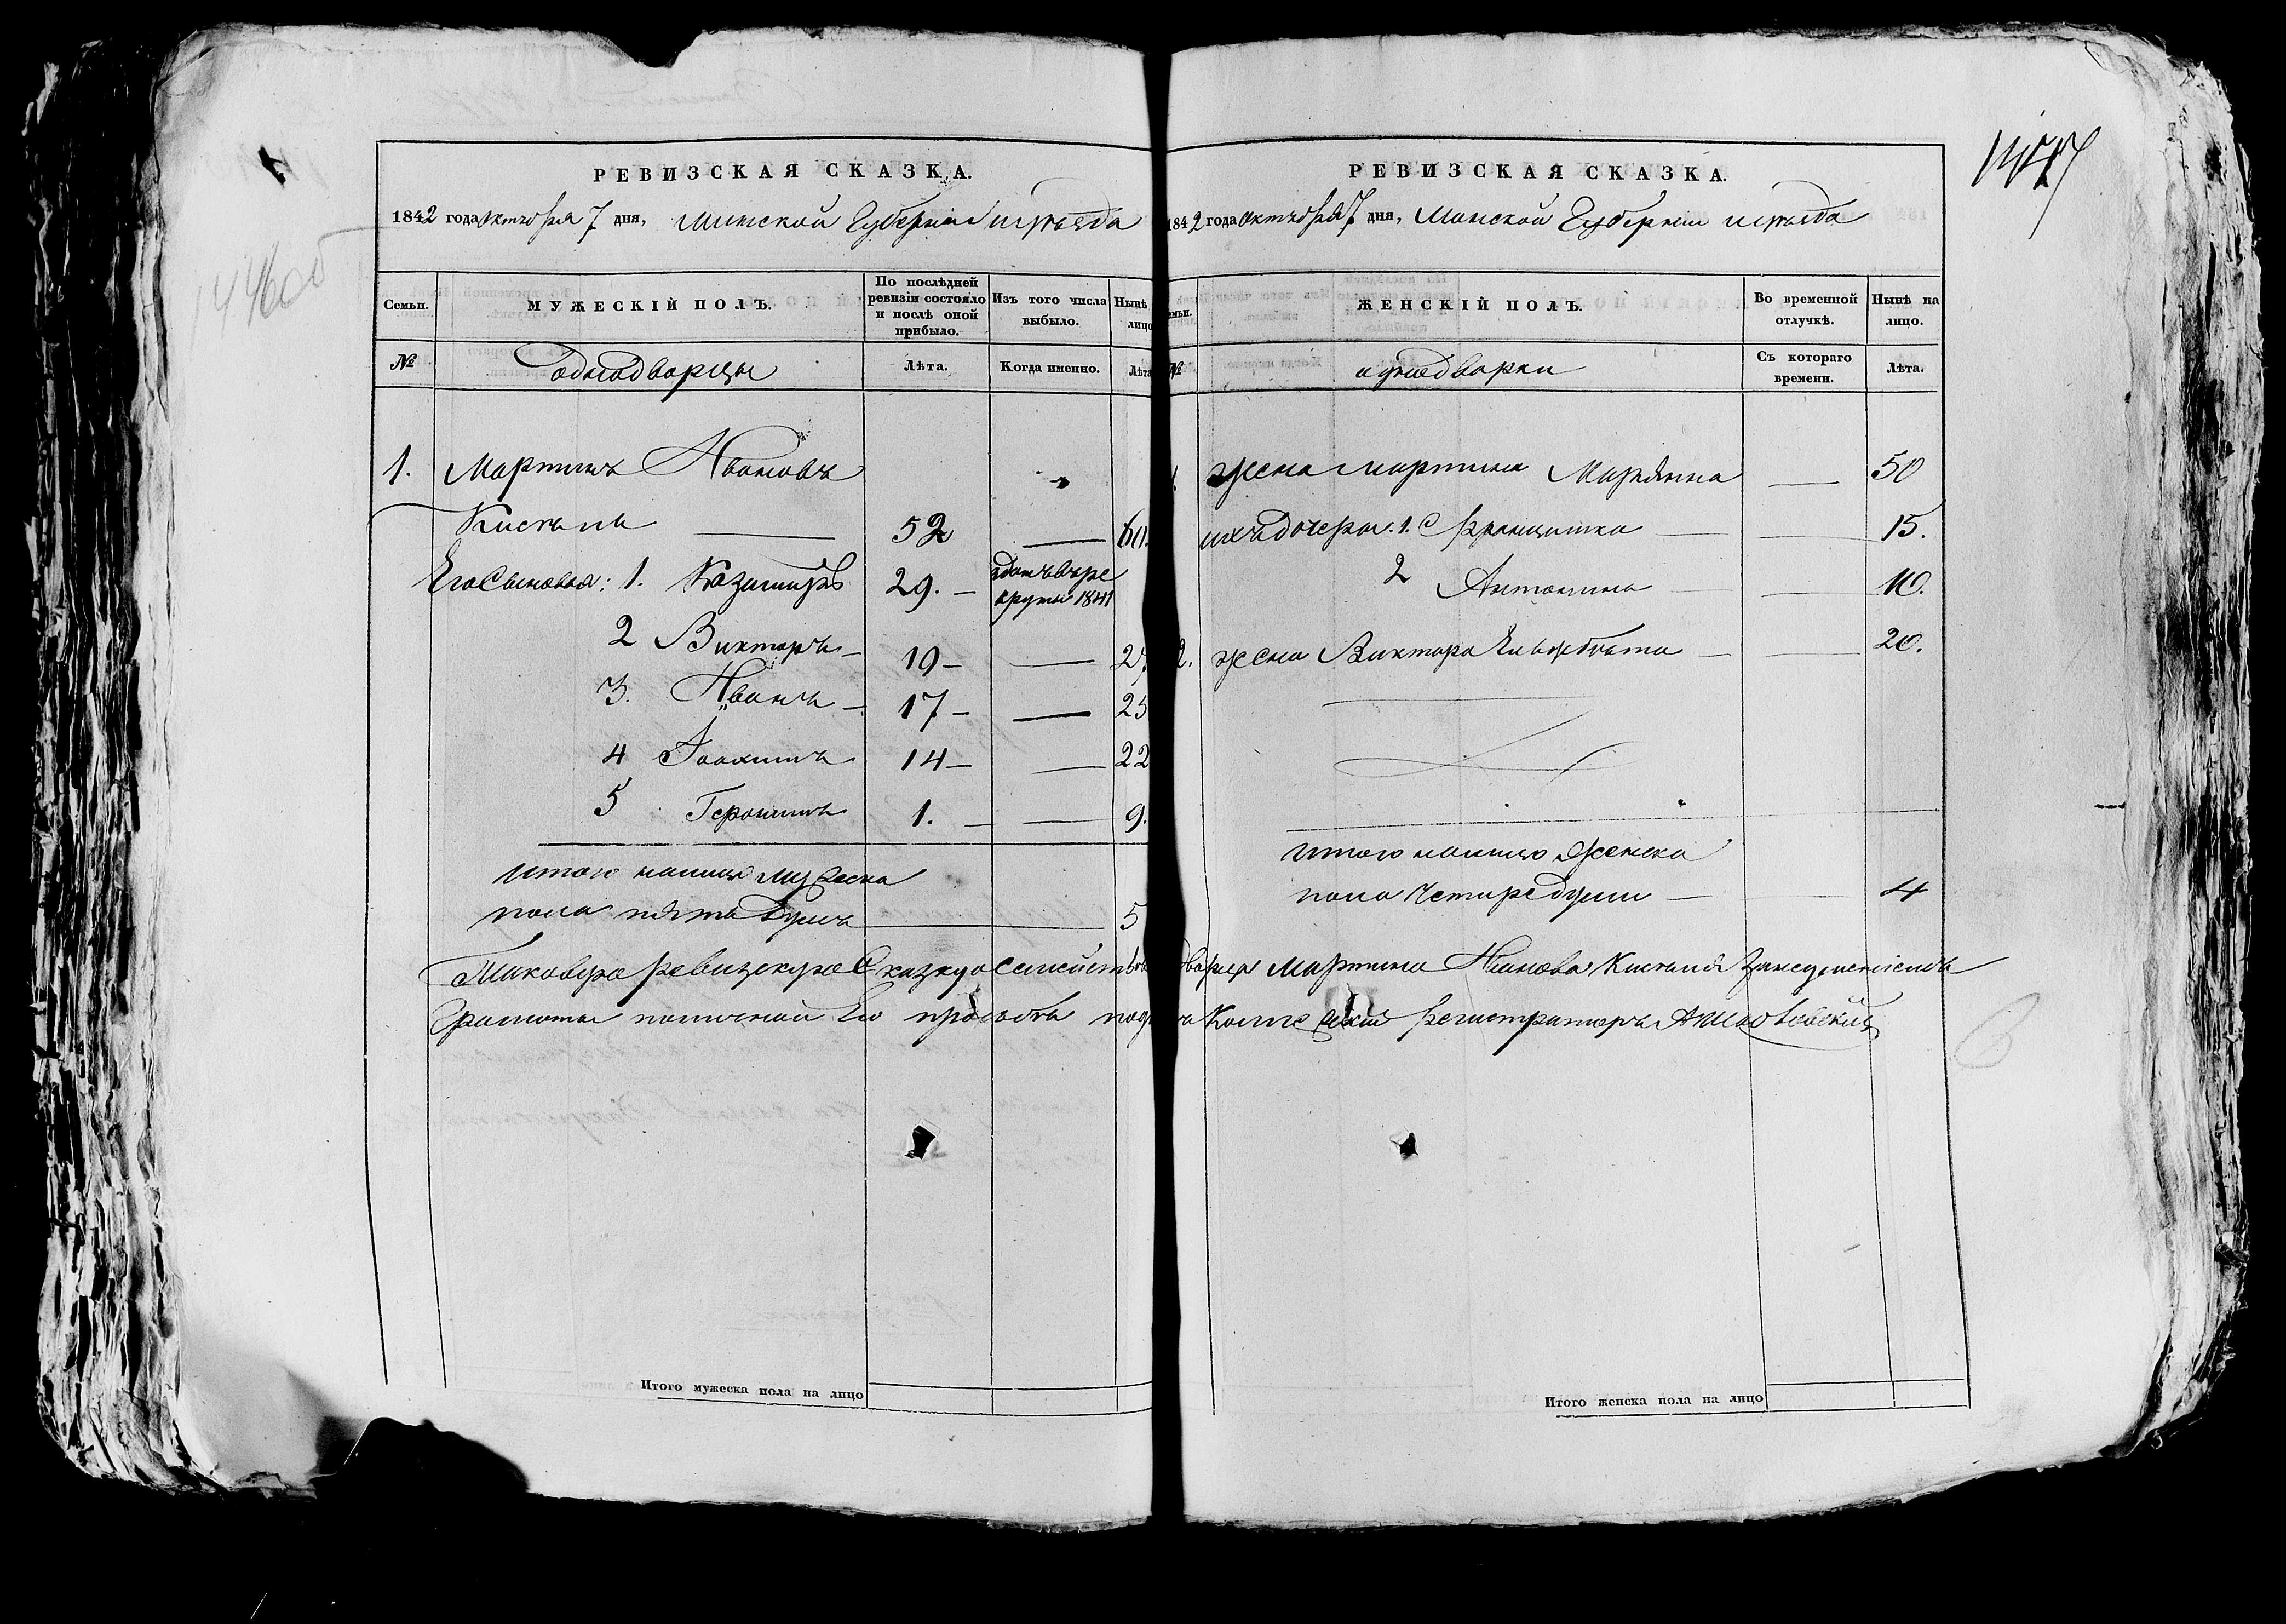 РЕВИЗСКАЯ СКАЗКА.
1842 года октября 7 дня, Минской Губернии и уезда
Семьи.
МУЖЕСКІЙ ПОЛЪ.
По послѣдней ревизіи состояло и послѣ оной прибыло.
Изъ того числа выбыло.
Нынѣ лицо
№
однодворцы
Лѣта.
Когда именно.
Лѣта
1. Мартинъ Ивановъ
Кисель 52 60.
Его Сыновья: 1. Казимиръ 29. здатъ въ рекруты 1841
2 Викторъ 19 27
3. Иванъ 17 25
4 Іоахимъ 14 22
5 Геронимъ 1. 9.
итого налицо мужеска
пола пять душъ 5
Таковую ревизскую Сказку о семействе
Грамоты по личной Его просьбы
Итого мужеска пола на лицо
147
РЕВИЗСКАЯ СКАЗКА.
1842 года октября 7 дня, Минской Губернии и уезда
ЖЕНСКІЙ ПОЛЪ.
Во временной отлучкѣ.
Нынѣ на лицо.
№
однодворки
Съ котораго времени.
Лѣта.
жена Мартина Марьянна 50
ихъ дочеры: 1. Францишка 15.
2 Антонина 10.
2. жена Виктора Елизабета 20.
итого налицо женска
пола четыре души 4
Мартина Иванова Киселя за неумениемъ
Коллежский Регистраторъ
Итого женска пола на лицо